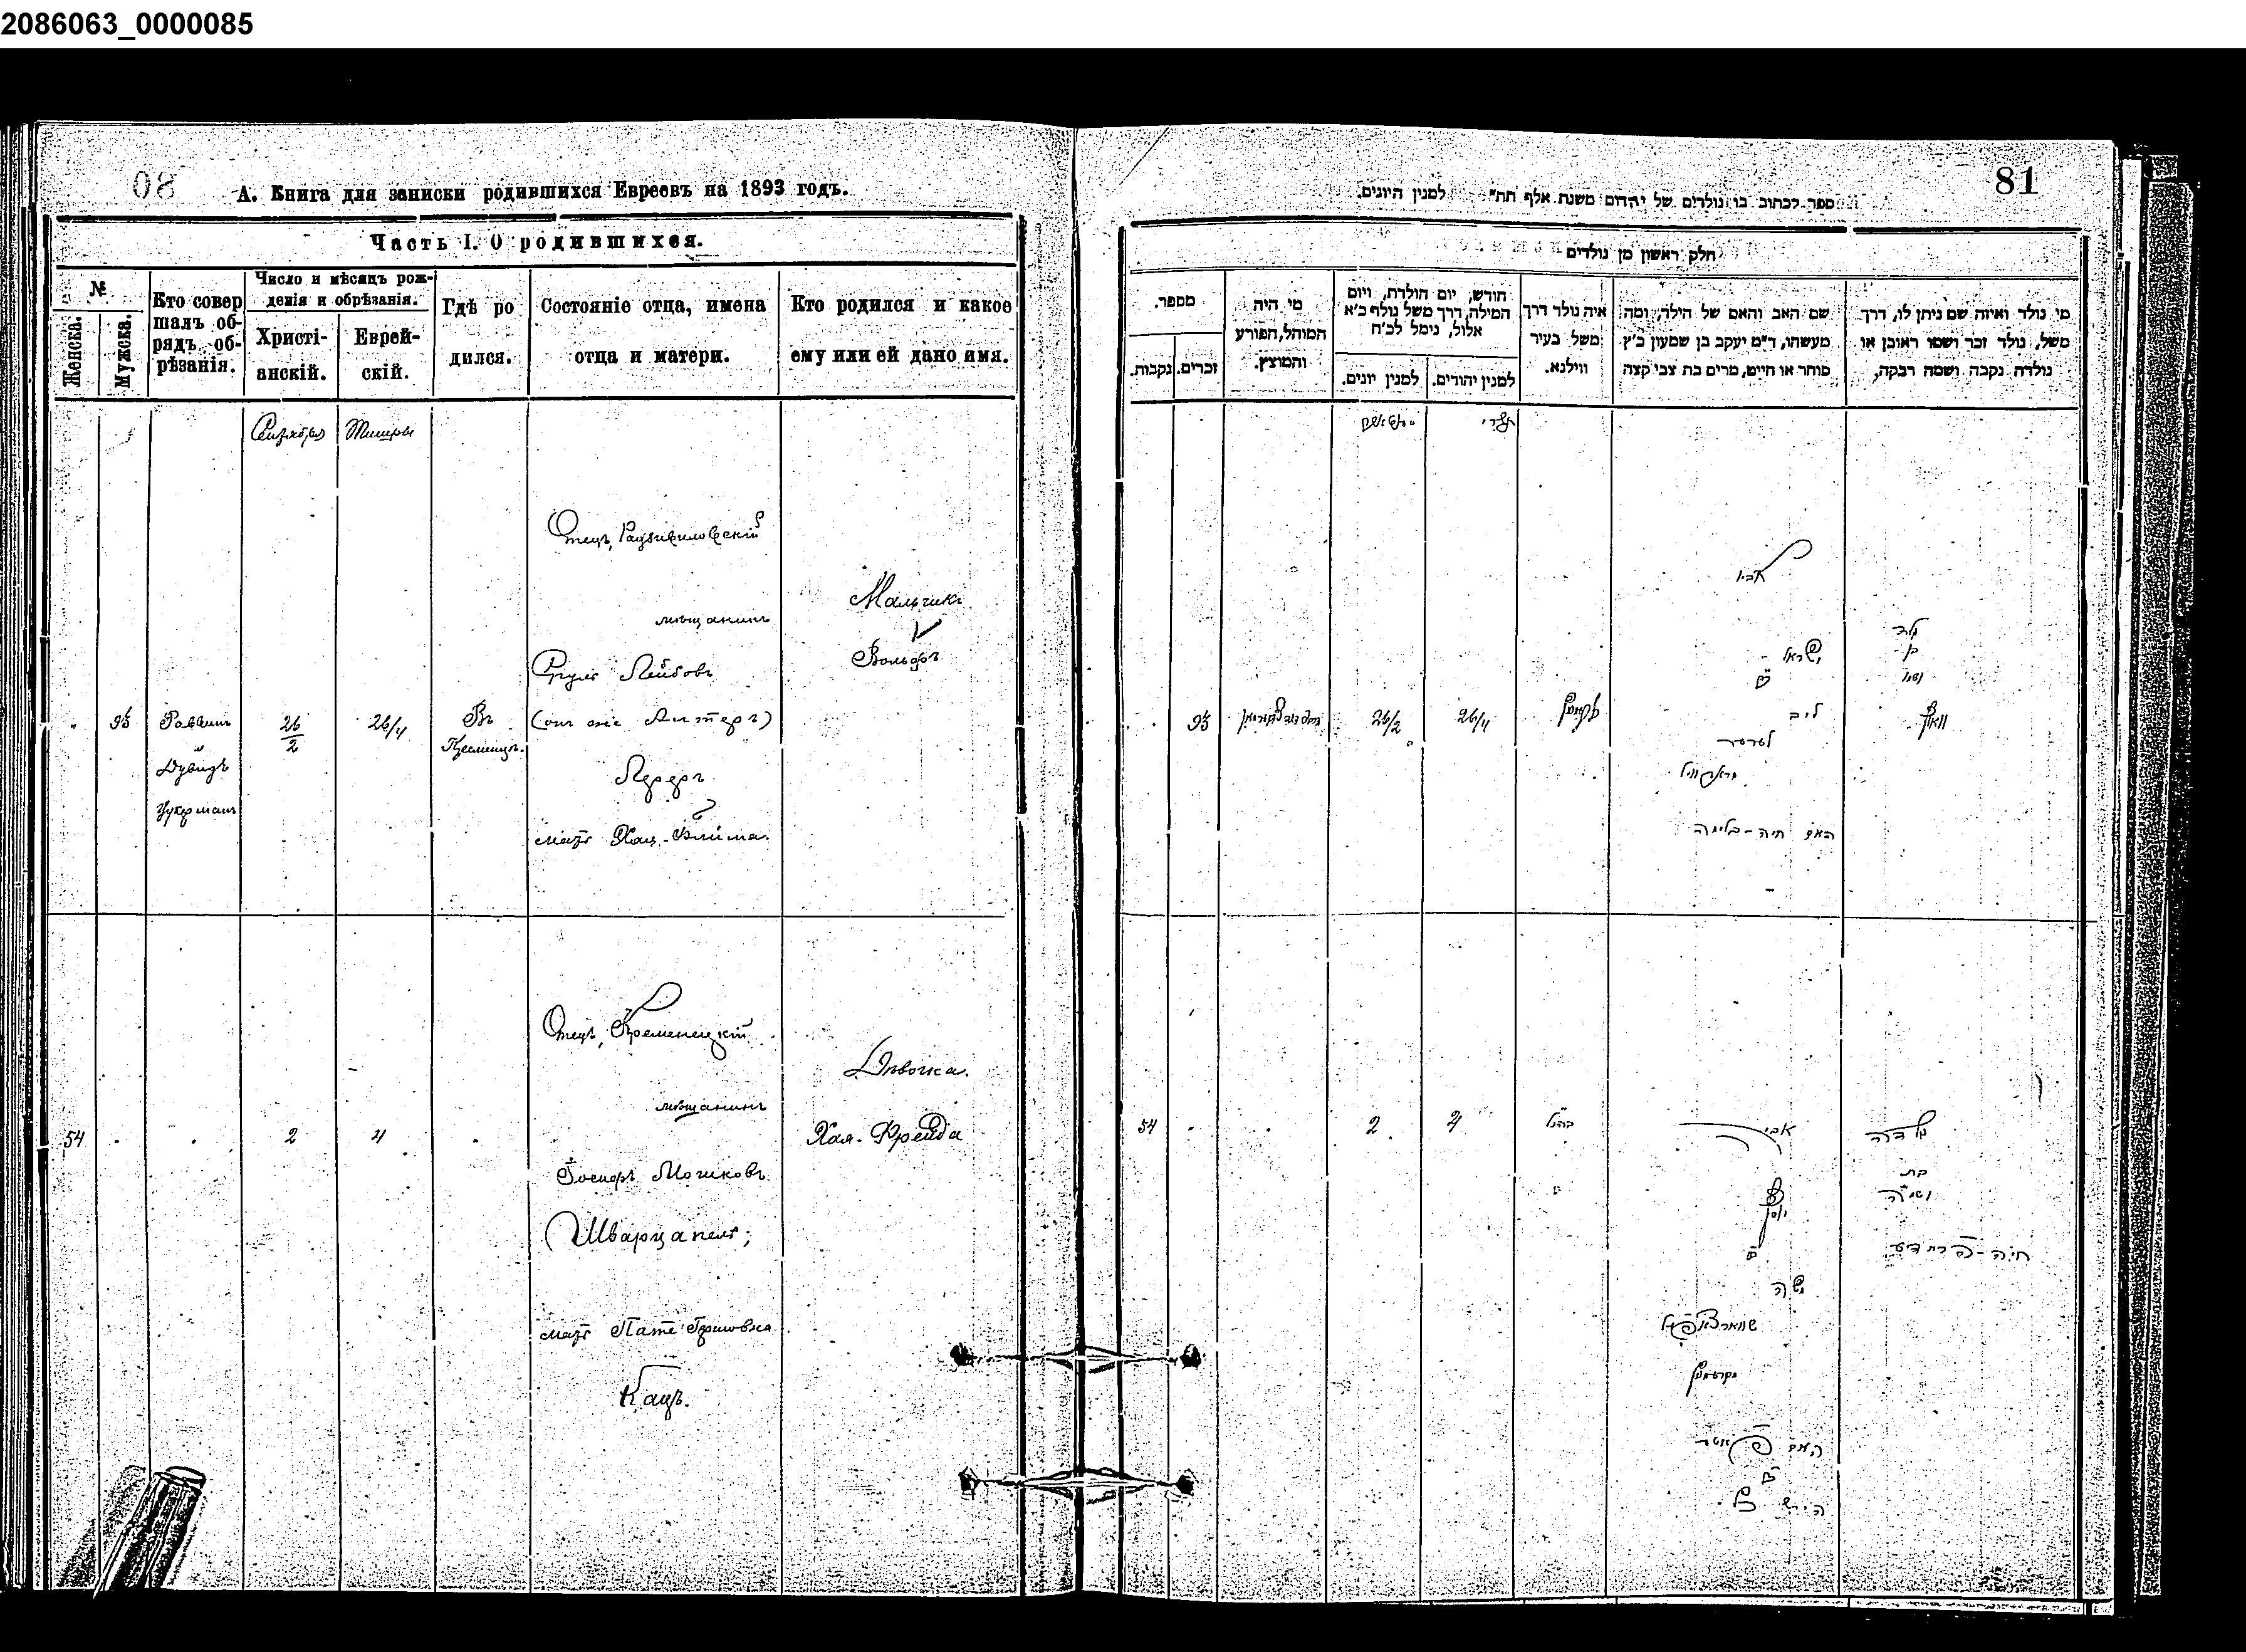 2086063_0000085
80
А. Книга для записки родившихся Евреевъ на 1893 годъ.
Часть I. О родившихся.
№
Женска.
Мужска.
Кто совер
шалъ об-
рядъ об-
рѣзанія.
Число и мѣсяцъ рож-
денія и обрѣзанія.
Христі-
анскій.
Еврей-
скій.
Гдѣ ро
дился.
Состояніе отца, имена
отца и матери.
Кто родился и какое
ему или ей дано имя.
Сентября
Тишри
95
Раввинъ
Дувидъ
Цукерманъ
26
2
26/4
Въ
Кременцѣ.
Отецъ, Радзивиловскій
мѣщанинъ
Сруль Лейбовъ
(онъ же Альтеръ)
Лереръ
мать Хая-Блима.
Мальчикъ
Вольфъ
54
2
4
Отецъ, Кременецкій
мѣщанинъ
Іосифъ Мошковъ
Шварцапель;
мать Гершовна
Кацъ.
Дѣвочка.
Хая-Фрейда
81
ספר לכתוב בו נולדים של יהדום משנת אלף תת" למנין היונים.
חלק ראשון מן נולדים
מספר.
נקבות.
זכרים.
מי היה
המוהל, הפורע
והמוצץ.
חודש, יום הולדת, ויום
המילה, דרך משל נולד כ'א
אלול, נימל לכ'ח
למנין יונים.
למנין יהודים.
איה נולד דרך
משל בעיר
ווילנא.
שם האב והאם של הילד, ומה
מעשהו, ד"מ יעקב בן שמעון כ'ץ
סוחר או חייט, מרים בת צבי קצה
מי נולד ואיזה שם ניתן לו, דרך
משל, נולד זכר ושמו ראובן או
נולדה נקבה ושמה רבקה,
תשרי
95
26/2
26/4
אביו
ישראל
ב"ר
ליב
לערער
האם חיה-בלימה
נולד
בן
ושמו
וואלף
54
2
4
כהנ"ל
אביו
יוסף
ב"ר
משה
שווארצאפעל
האם
ב"ר
הירש כץ
נולדה
בת
ושמה
חיה-פריידע